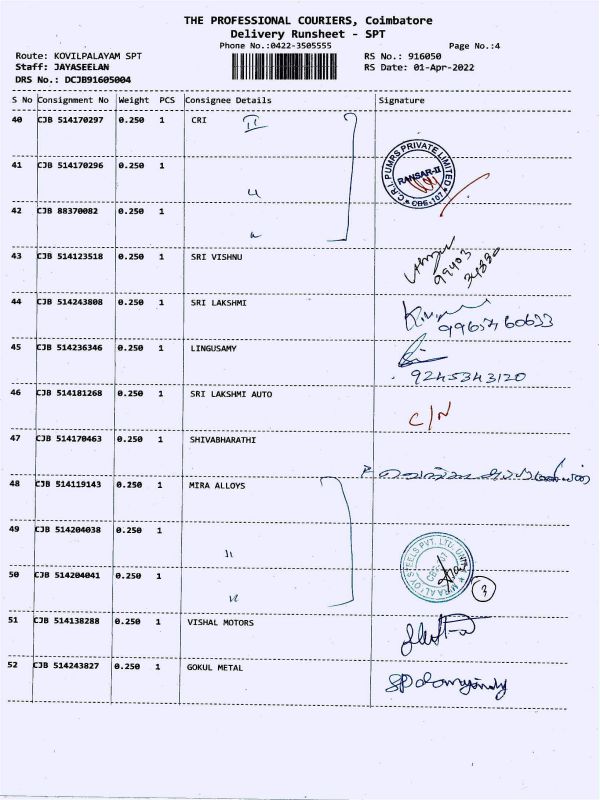 THE PROFESSIONAL COURIERS, Coimbatore
Delivery Runsheet - SPT
Phone No.:0422-3505555 Page No.:4
Route: KOVILPALAYAM SPT RS No.: 916050
Staff: JAYASEELAN RS Date: 01-Apr-2022
DRS No.: DCJB91605004
S No Consignment No Weight PCS Consignee Details Signature
40 CJB 514170297 0.250 1 CRI II
C.R.I. PUMPS PRIVATE LIMITED
RANSAR-II
CBE-107
41 CJB 514170296 0.250 1 "
42 CJB 88370082 0.250 1 "
43 CJB 514123518 0.250 1 SRI VISHNU
44 CJB 514243808 0.250 1 SRI LAKSHMI
45 CJB 514236346 0.250 1 LINGUSAMY
9245343120
46 CJB 514181268 0.250 1 SRI LAKSHMI AUTO C/N
47 CJB 514170463 0.250 1 SHIVABHARATHI
48 CJB 514119143 0.250 1 MIRA ALLOYS
49 CJB 514204038 0.250 1 "
50 CJB 514204041 0.250 1 " 3
51 CJB 514138288 0.250 1 VISHAL MOTORS
52 CJB 514243827 0.250 1 GOKUL METAL